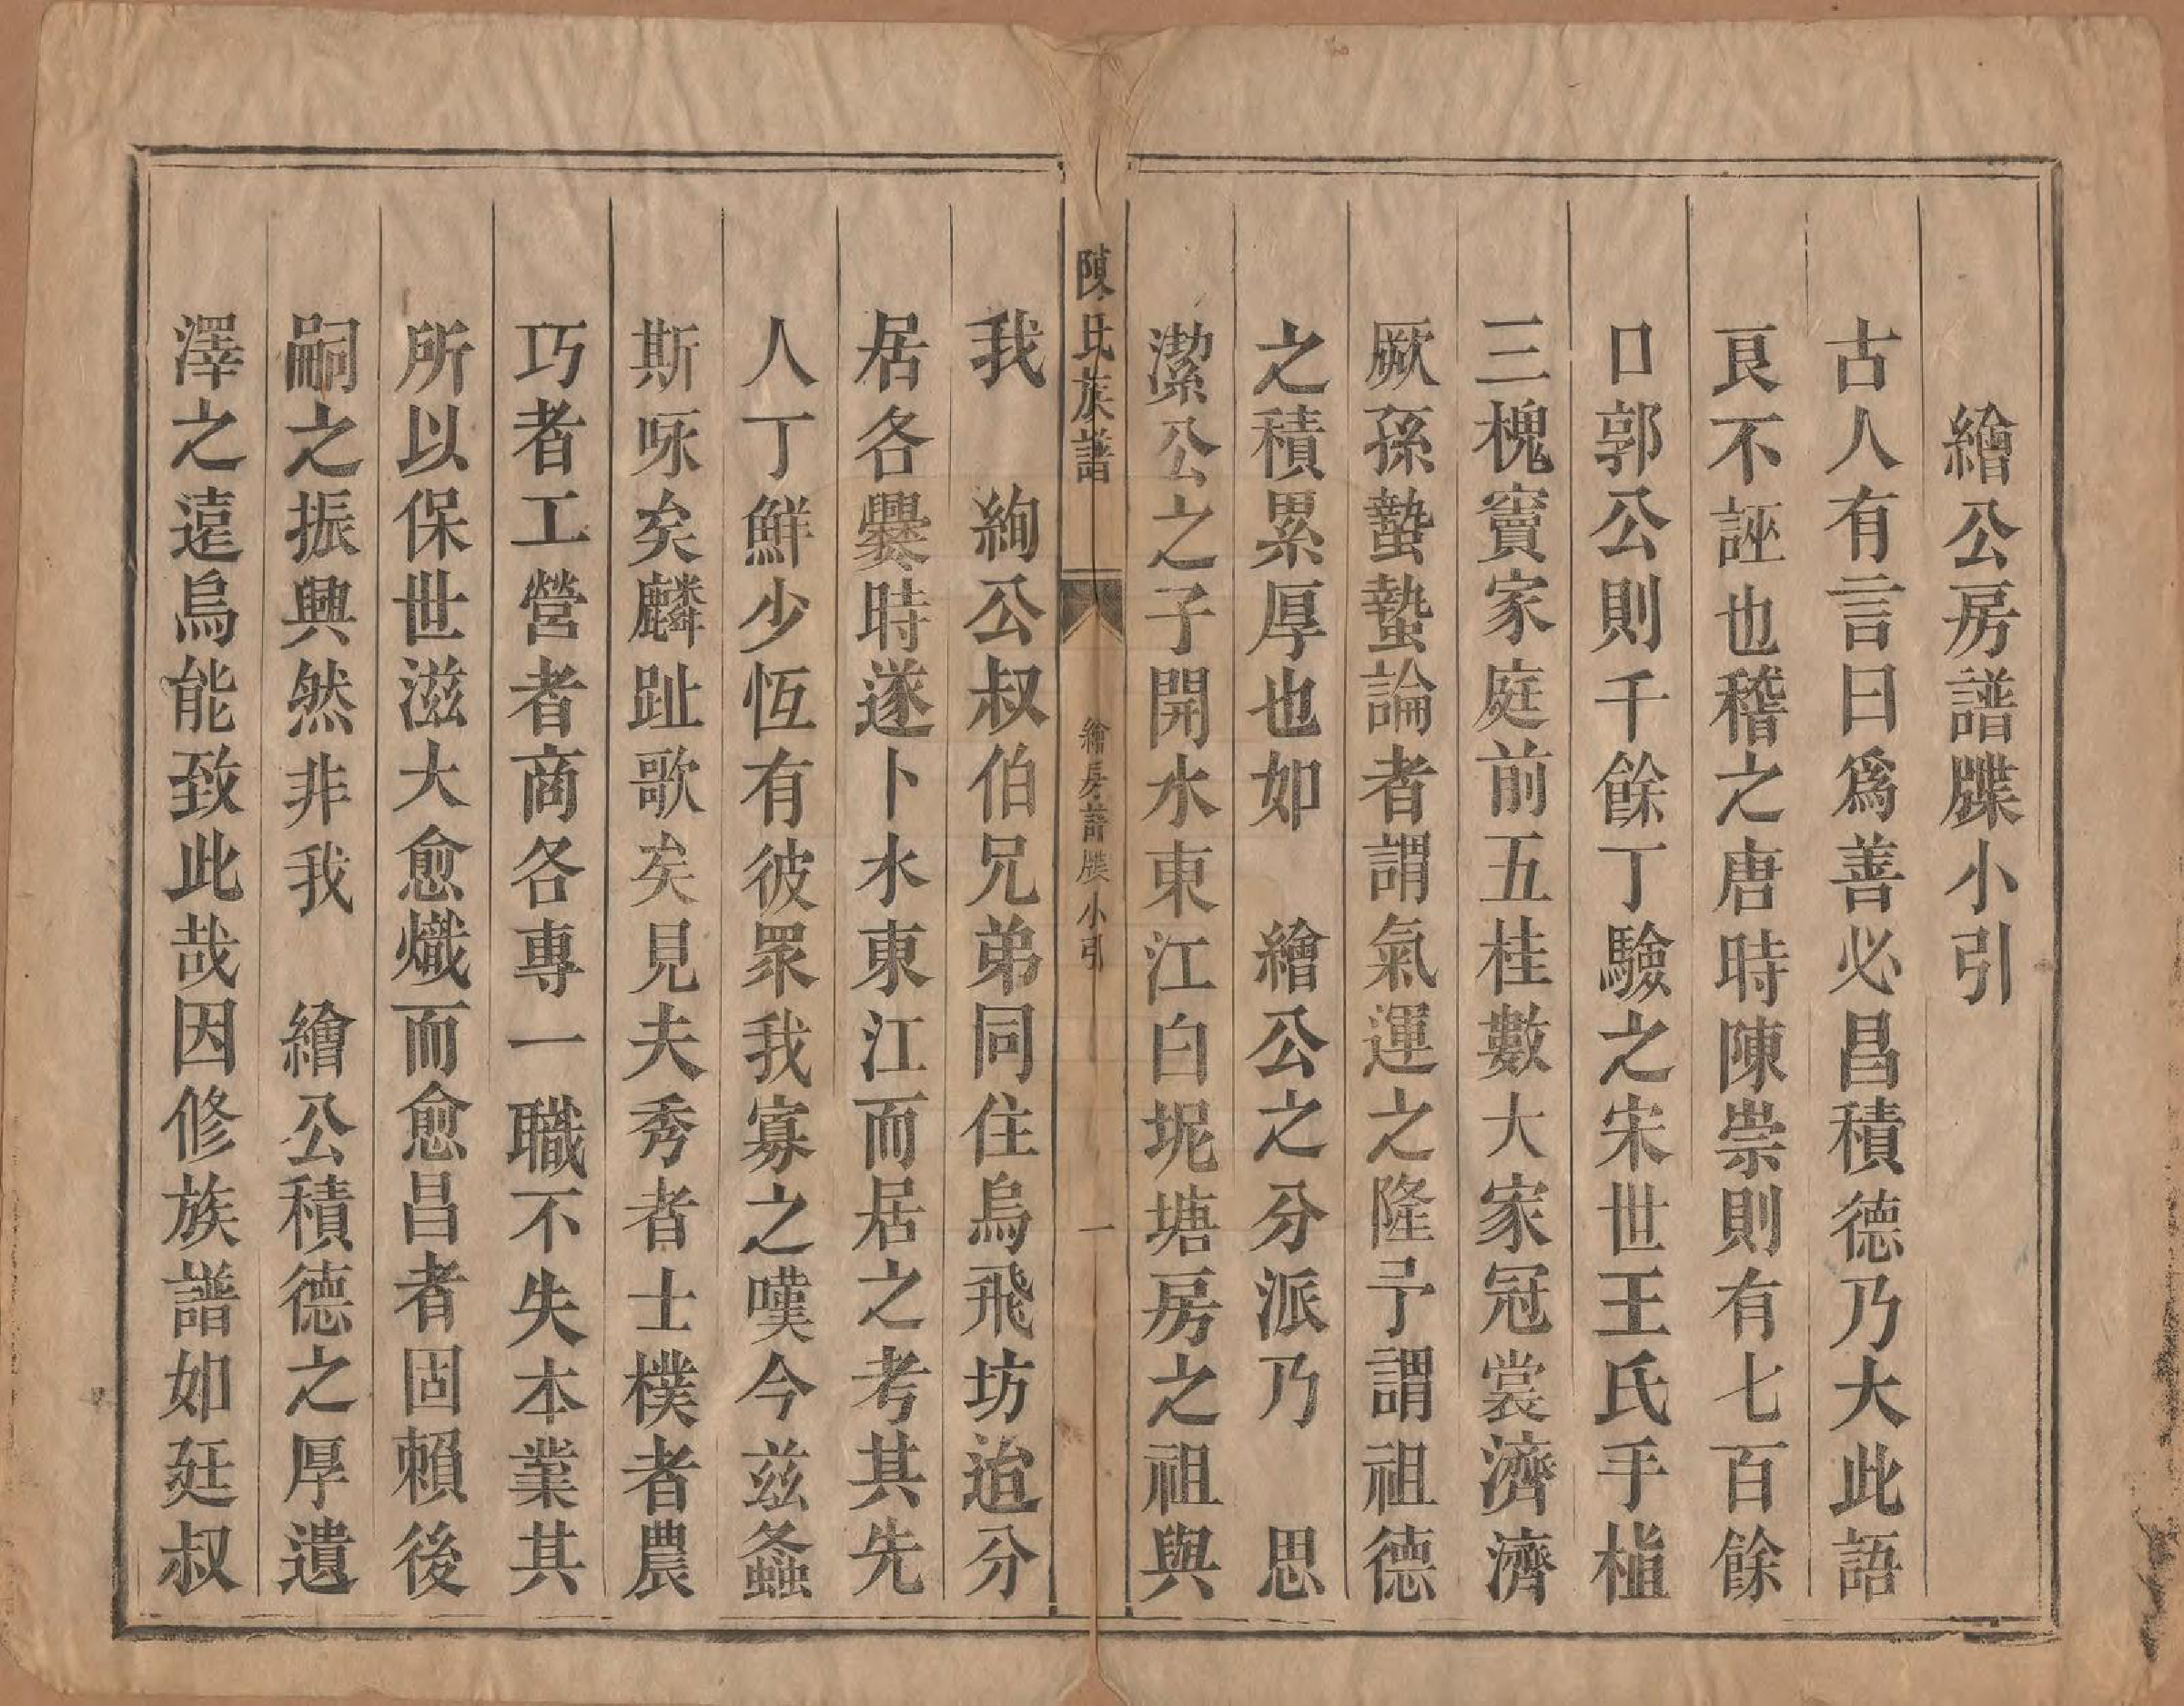 繪公房譜牒小引
古人有言曰爲善必昌積德乃大此語
良不誣也稽之唐時陳崇則有七百餘
口郭公則千餘丁驗之宋世王氏手植
三槐竇家庭前五桂數大家冠裳濟濟
厥孫蟄蟄論者謂氣運之隆予謂祖德
之積累厚也如　繪公之分派乃　思
潔公之子開水東江白坭塘房之祖與
陳氏族譜
繪房譜牒小引
一
我　絢公叔伯兄弟同住烏飛坊迨分
居各爨時遂卜水東江而居之考其先
人丁鮮少恆有彼眾我寡之嘆今茲螽
斯咏矣麟趾歌矣見夫秀者士樸者農
巧者工營者商各專一職不失本業其
所以保世滋大愈熾而愈昌者固賴後
嗣之振興然非我　繪公積德之厚遺
澤之遠烏能致此哉因修族譜如廷叔